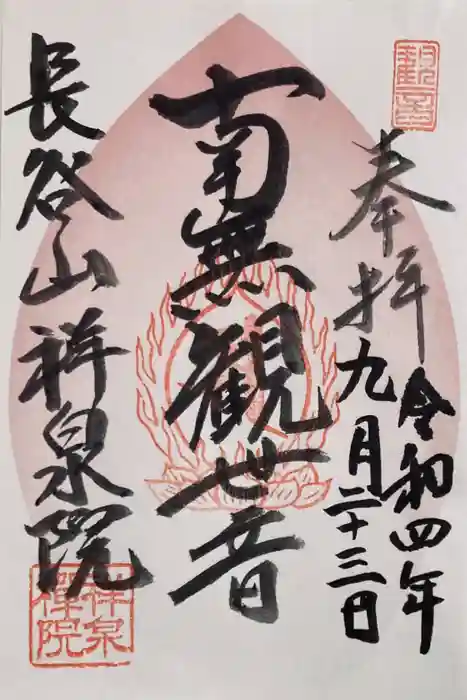 奉拝
令和四年
九月二十三日
南無観世音
長谷山祥泉院
祥泉
禅院